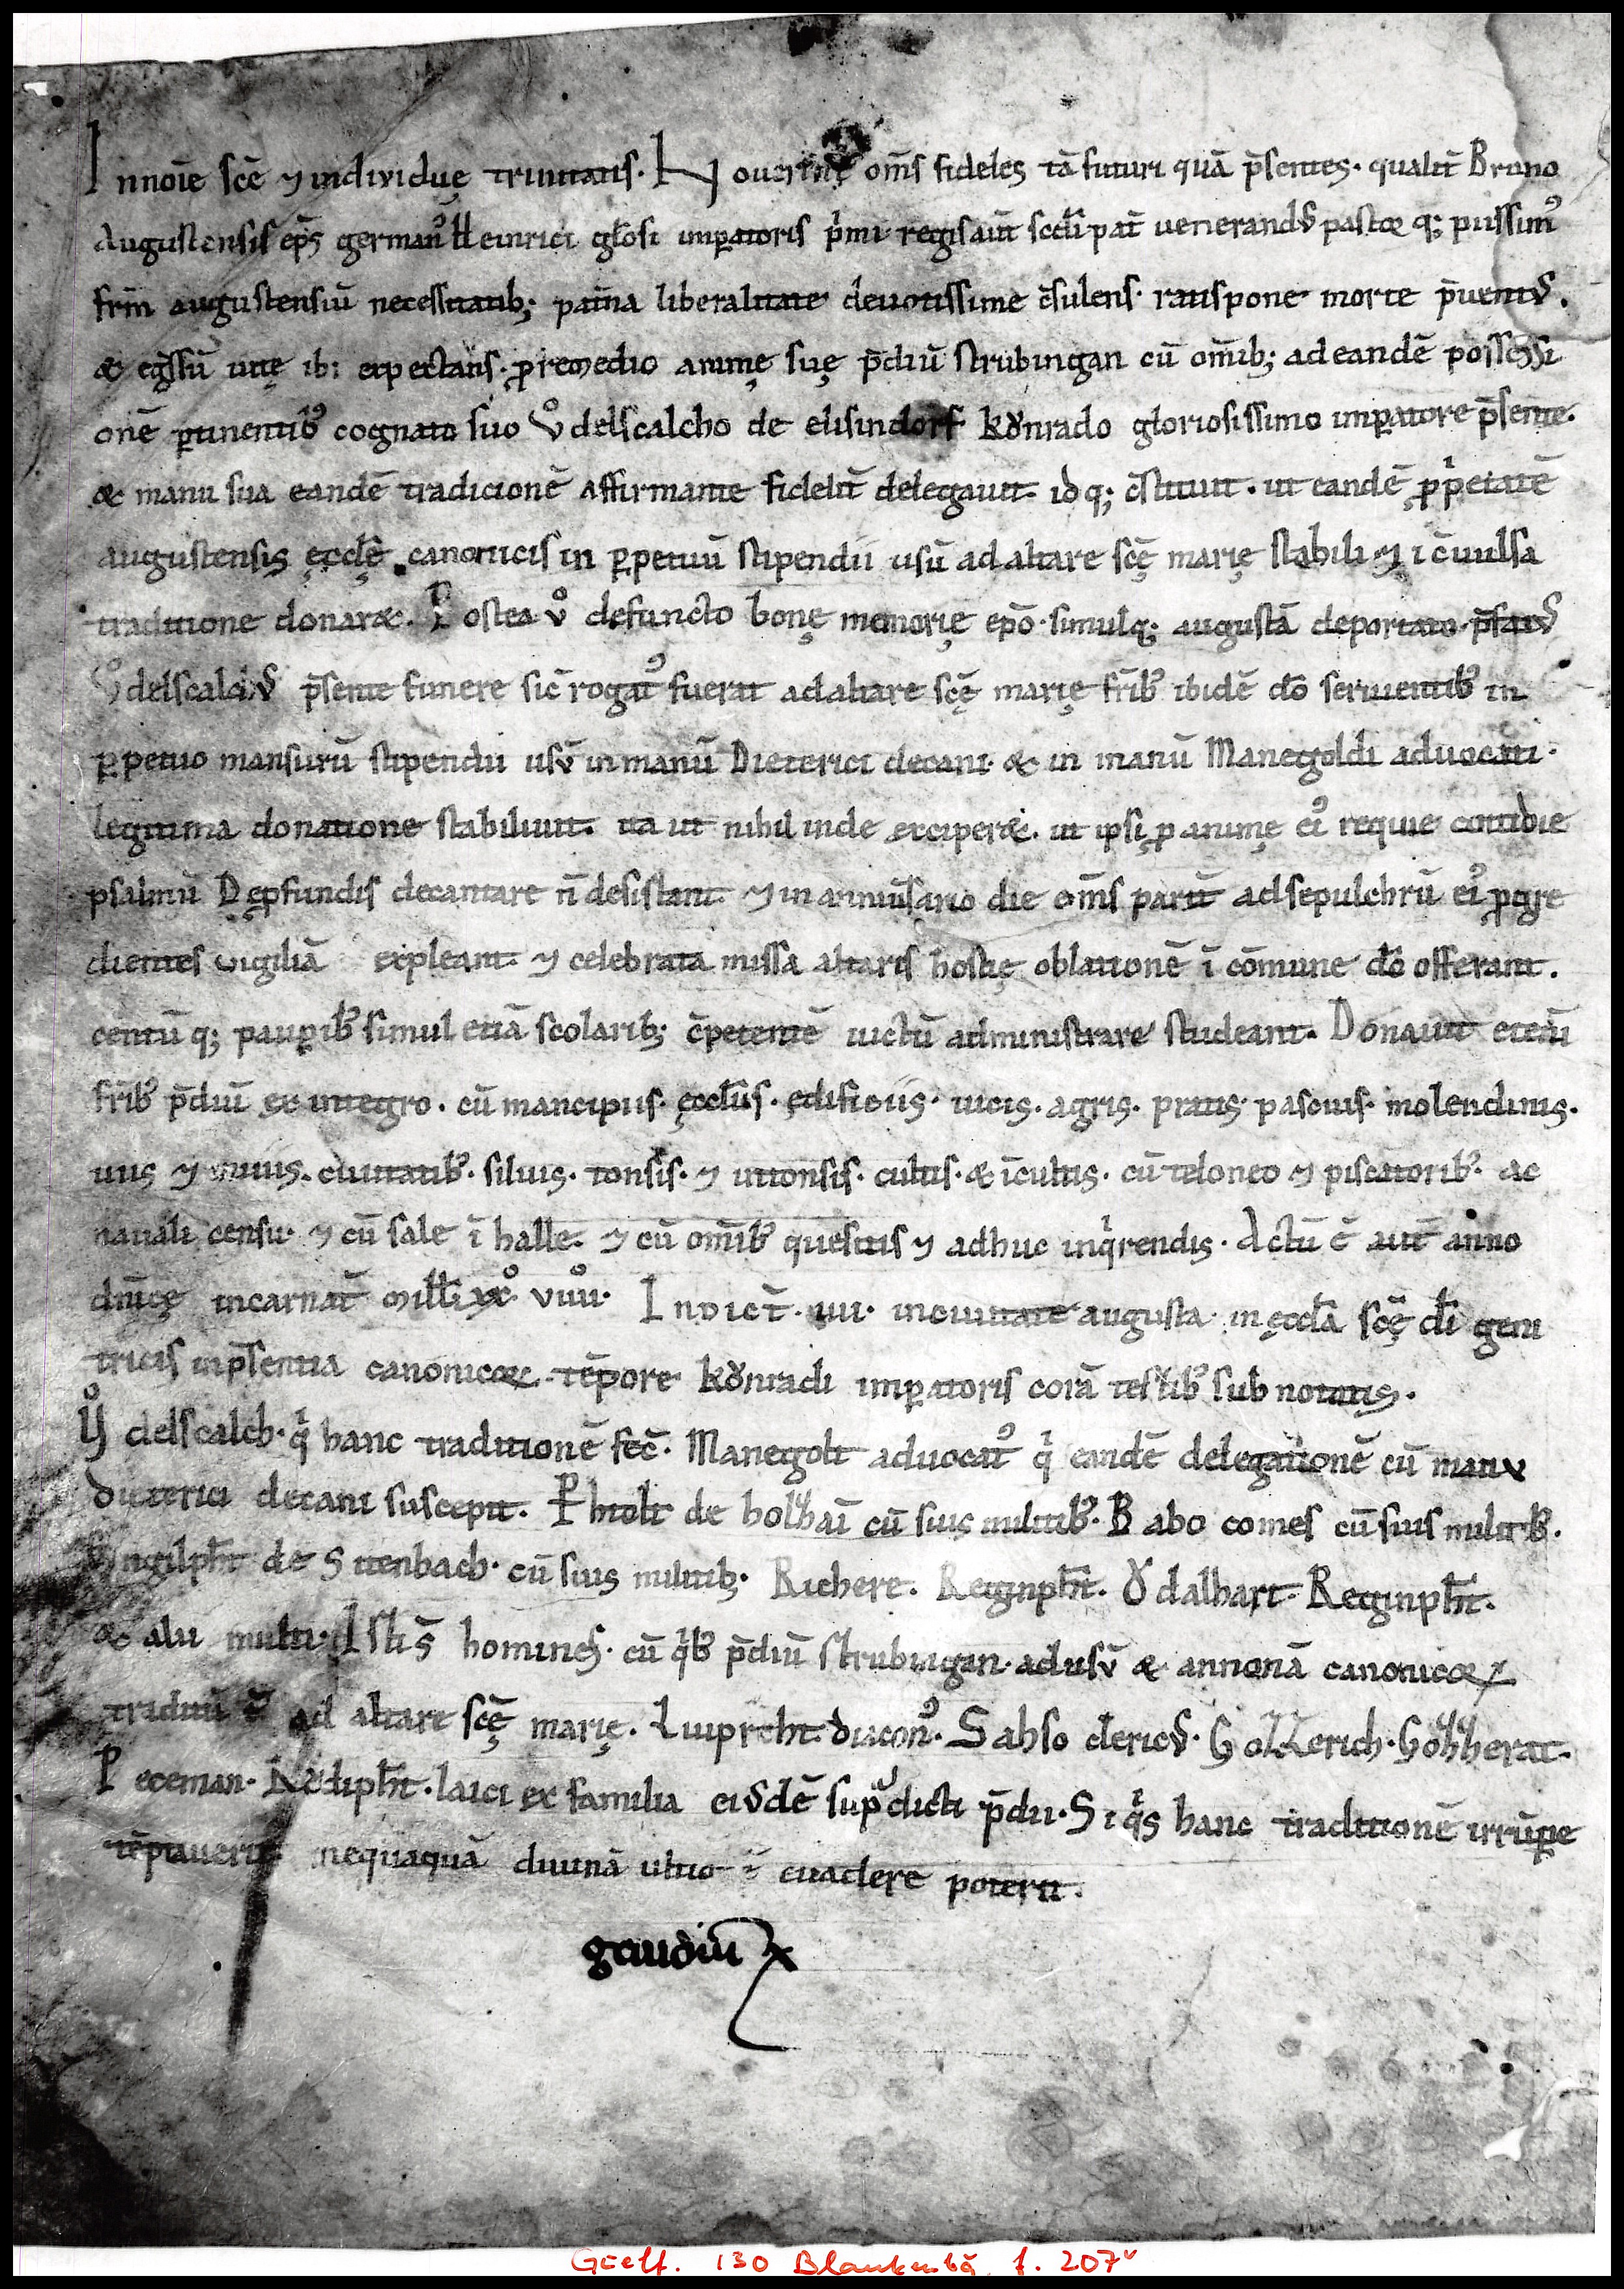 In noīe scē ⁊ individuę trinitatis. Nouerint om̄s fideles tā futuri quā p̄sentes. qualit̄ Bruno
Augustensis ep̄s german᾽ Heinrici gl̄osi imꝑatoris p̄mi regis aūt scd̄i pat̄ uenerand᾽ pastor q; piissim᾽
frm̄ augustensiū necessitatib; pat̄na liberalitate deuotissime c̄sulens. ratispone morte p̄uent᾽.
& eḡssū uitę ibi expectans. ꝓ remedio animę suę p̄diū strubingan cū om̄ib; ad eandē possessi
onē ꝑtinentib᾽ cognato suo Vͦdelscalcho de elisindorf kǒnrado gloriosissimo imꝑatore p̄sente.
& manu sua eandē tradicionē affirmante fidelit̄ delegauit. id q; c̄stituit. ut eandē ꝓp̍etatē
augustensis ęccl̄ę canonicis in ꝑpetuū stipendii usū ad altare scę̄ marię stabili ⁊ ī c̄uulsa
traditione donar&. Postea v̊ defuncto bonę memorię ep̄o. simulq; augustā deportato. p̄fat᾽
Vͦdelscalc᾽ p̄sente funere sic̄ rogat᾽ fuerat ad altare scę̄ marię fr̄ib᾽ ibidē dō seruientib᾽ in
ꝑpetuo mansurū stipendii usū in manū Dieterici decani. & in manū Manegoldi aduocati.
legitima donatione stabiliuit. ita ut nihil inde exciper&. ut ipsi ꝓ animę ei᾽ requie cottidie
psalmū De ꝓfundis decantare n̄ desistant. ⁊ in anniūsario die om̄s parit̄ ad sepulchrū ei᾽ ꝓgre
dientes uigiliā expleant. ⁊ celebrata missa altaris hostię oblationē ī cōmune dō offerant.
centū q; pauꝑib᾽ simul etiā scolarib; c̄petentē uictū administrare studeant. Donauit etenī
fr̄ib᾽ p̄diū ex integro. cū mancipiis. ęccl̄iis. ędificiis. uicis. agris. pratis. pascuis. molendinis.
uiis ⁊ inuiis. ciuitatib᾽. siluis. tonsis. ⁊ intonsis. cultis. & īcultis. cū teloneo ⁊ piscatorib᾽. ac
nauali censu. ⁊ cū sale ī halle. ⁊ cū om̄ib᾽ quesitis ⁊ adhuc inq̍rendis. Actū ē aut̄ anno
dn̄icę incarnat̄ mill̄i xx̊ viiii̊. Indict̄. in ciuitate augusta. in ęccl̄a scę̄ dī geni
tricis in p̄sentia canonicoꝝ. tēpore kǒnradi imꝑatoris corā testib᾽ sub notatis.
Vͦdelscalch. q̍ hanc traditionē fec̄. Manegolt aduocat᾽ q̍ eandē delegationē cū manv
dieterici decani suscepit. P htolt de cū suis militib᾽. Babo comes cū suis militib᾽.
Engilpht̄ de Sittenbach. cū suis militib;. Richere. Reginpht̄. Ǒdalhart. Reginpht̄.
& alii multi. Isti s̄ homines. cū q̍b᾽ p̄diū strubingan. ad usū & annonā canonicoꝝ
traditū ē ad altare scę̄ marię. Luiprcht diacon᾽. Sahso cleric᾽.
Peceman. laici ex familia ei᾽dē sup̄dicti p̄dii. Si q̍s hanc traditionē irrūpe
tēptauerit. nequaquā diuinā ultio ē euadere poterit.
gaudiū
Guelf. 130 Blankenbg. f. 207v